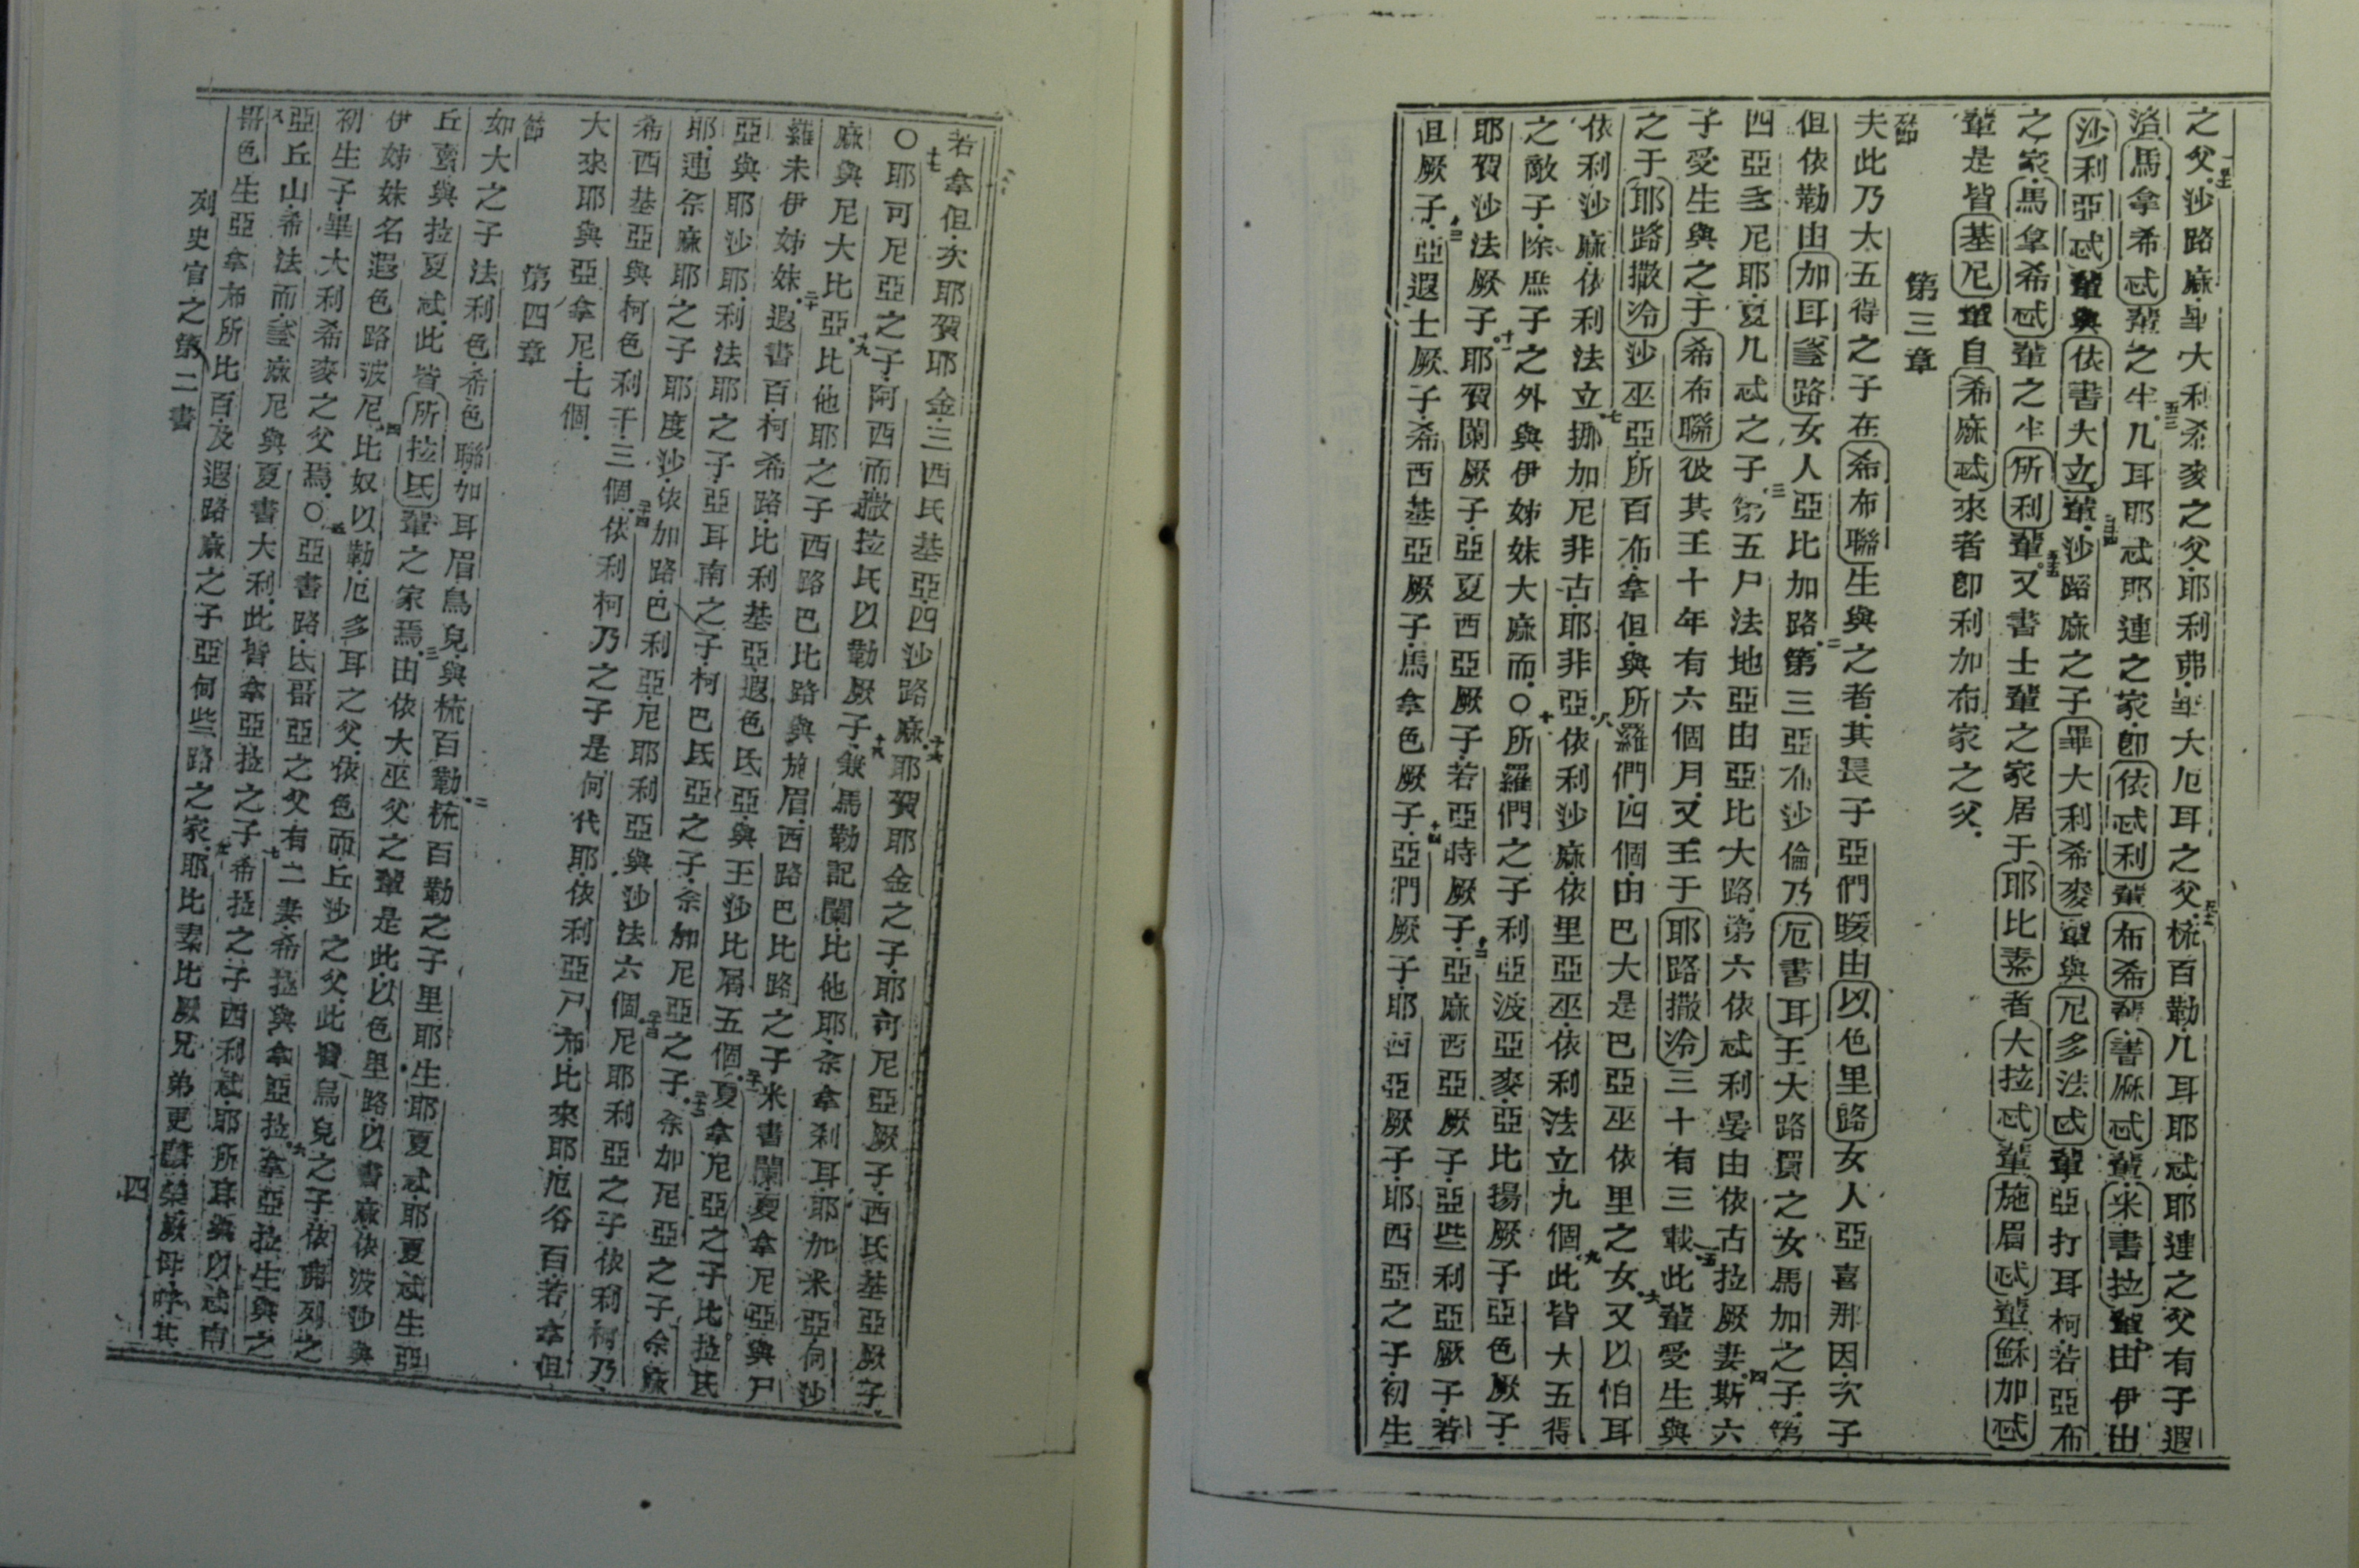 之父沙路麻畢大利希麥之父耶利弗畢大厄耳之父梳百勒几耳耶忒耶連之父有子遐
洛馬拿希忒輩之半几耳耶忒耶連之家卽依忒利輩布希輩書麻忒輩米書拉輩由伊出
沙利亞忒輩與依書大立輩沙路麻之子畢大利希麥輩與尼多法忒輩亞打耳柯若亞布
之家馬拿希忒輩之半所利輩又書士輩之家居于耶比素者大拉忒輩施眉忒輩穌加忒
輩是皆基尼輩自希麻忒來者卽利加布家之父
第三章
節
夫此乃大五得之子在希布聯生與之者其長子亞們暖由以色里路女人亞喜那因次子
但依勒由加耳𡋾路女人亞比加路第三亞布沙倫乃厄書耳王大路買之女馬加之子第
四亞多尼耶夏几忒之子第五尸法地亞由亞比大路第六依忒利晏由依古拉厥妻斯六
子受生與之于希布聯彼其王十年有六個月又王于耶路撒冷三十有三載此輩受生與
之于耶路撒冷沙巫亞所百布拿但與所羅們四個由巴大是巴亞巫依里之女又以怕耳
依利沙麻依利法立挪加尼非古耶非亞依利沙麻依里亞巫依利法立九個此皆大五得
之敵子除庶子之外與伊姊妹大麻而〇所羅們之子利亞波亞麥亞比揚厥子亞色厥子
耶賀沙法厥子耶賀闌厥子亞夏西亞厥子若亞時厥子亞麻西亞厥子亞些利亞厥子若
但厥子亞遐士厥子希西基亞厥子馬拿色厥子亞們厥子耶西亞厥子耶西亞之子初生
若拿但次耶賀耶金三西氏基亞四沙路麻耶賀耶金之子耶可尼亞厥子西氏基亞厥子
〇耶可尼亞之子阿西而撒拉氏以勒厥子兼馬勒記闌比他耶余拿利耳耶加米亞何沙
麻與尼大比亞比他耶之子西路巴比路與施眉西路巴比路之子米書闌夏拿尼亞與尸
羅未伊姊妹遐書百柯希路比利基亞遐色氏亞與王沙比屑五個夏拿尼亞之子比拉氏
亞與耶沙耶利法耶之子亞耳南之子柯巴氏亞之子余加尼亞之子余加尼亞之子余麻
耶連余麻耶之子耶度沙依加路巴利亞尼耶利亞與沙法六個尼耶利亞之子依利柯乃
希西基亞與柯色利干三個依利柯乃之子是何代耶依利亞尸布比來耶厄谷百若拿但
大來耶與亞拿尼七個
第四章
節
如大之子法利色希色聯加耳眉烏兒與梳百勒梳百勒之子里耶生耶夏忒耶夏忒生亞
丘賣與拉夏忒此皆所拉氏輩之家焉由依大巫父之輩是此以色里路以書麻依波沙與
伊姊妹名遐色路波尼比奴以勒厄多耳之父依色而丘沙之父此皆烏兒之子依弗列之
初生子畢大利希麥之父焉〇亞書路氐哥亞之父有二妻希拉與拿亞拉拿亞拉生與之
亞丘山希法而𡋾麻尼與夏書大利此皆拿亞拉之子希拉之子西利忒耶所耳與以忒南
哥色生亞拿布所比百及遐路麻之子亞何些路之家耶比素比厥兄弟更榮厥母呼其
列史官之第二書
四